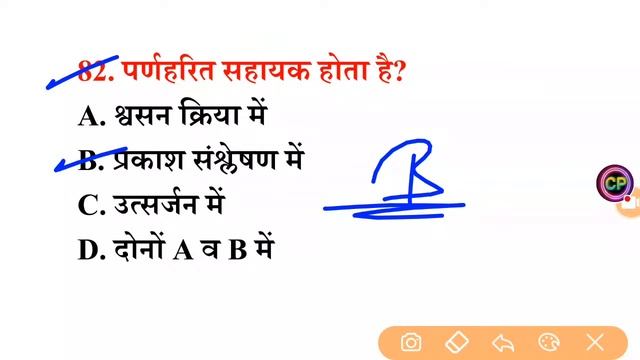 82. पर्णहरित सहायक होता है?
A. श्वसन क्रिया में
B. प्रकाश संश्लेषण में
B
CP
C. उत्सर्जन में
D. दोनों A व B में